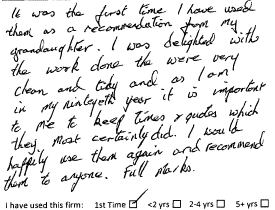 It was the first time I have used
them as a recommendation from my
grandaughter. I was delighted with
the work done the were very
clean and tidy and as I am
in my ninteyeth year it is important
to me to keep times & quotes which
they most certainly did. I would
happily use them again and recommend
them to anyone. Full marks.
I have used this firm: 1st Time ☑ <2 yrs ☐ 2-4 yrs ☐ 5+ yrs ☐